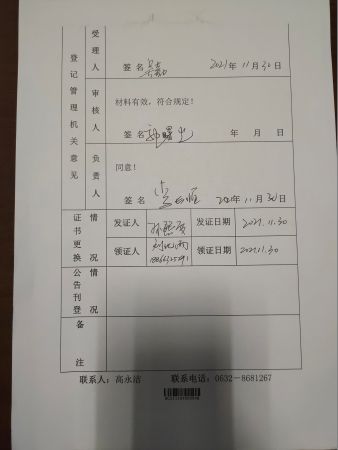 登记管理机关意见
受理人
签名 2021年11月30日
审核人
材料有效，符合规定！
签名 年 月 日
负责人
同意！
签名 2021年11月30日
证书更换情况
发证人 发证日期 2021.11.30
领证人 领证日期 2021.11.30
公告刊登情况
备注
联系人：高永洁 联系电话：0632－8681267